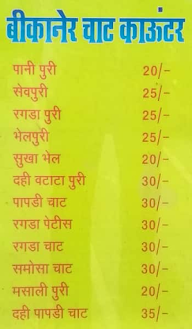 बीकानेर चाट काऊंटर
पानी पुरी 20/-
सेवपुरी 25/-
रगडा पुरी 25/-
भेलपुरी 25/-
सुखा भेल 20/-
दही वटाटा पुरी 30/-
पापडी चाट 30/-
रगडा पेटीस 30/-
रगडा चाट 30/-
समोसा चाट 30/-
मसाली पुरी 20/-
दही पापडी चाट 35/-